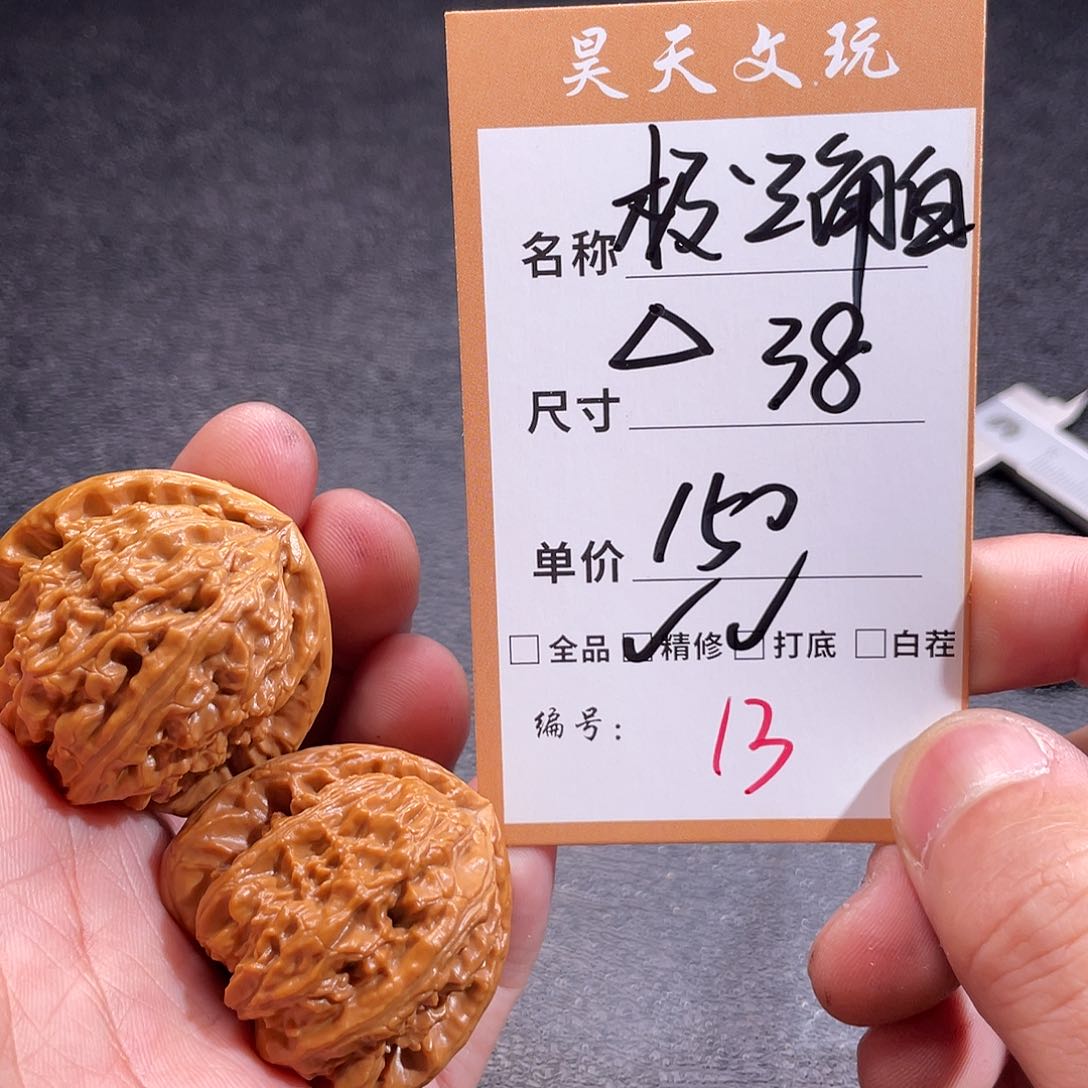 昊天文玩
名称
尺寸 △ 38
单价 150
□ 全品 ☑ 精修 ☑ 打底 □ 白茬
编号: 13